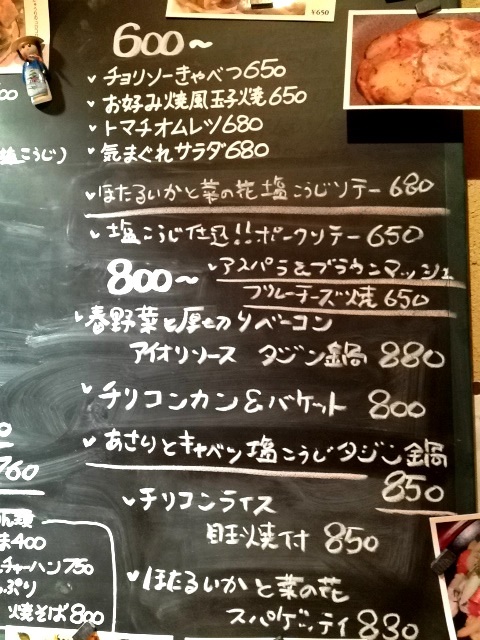 ¥650
600~
チョリソーきゃべつ650
お好み焼風玉子焼650
トマチオムレツ680
気まぐれサラダ680
ほたるいかと菜の花塩こうじソテー 680
塩こうじ仕込!!ポークソテー650
800~
アスパラ&ブラウンマッシュ
ブルーチーズ焼650
春野菜と厚切りベーコン
アイオリソース タジン鍋 880
チリコンカン&バケット 800
あさりとキャベツ塩こうじタジン鍋
850
チリコンライス
目玉焼付 850
ほたるいかと菜の花
スパゲッティ 830
塩こうじ)
760
400
チャーハン750
焼そば800